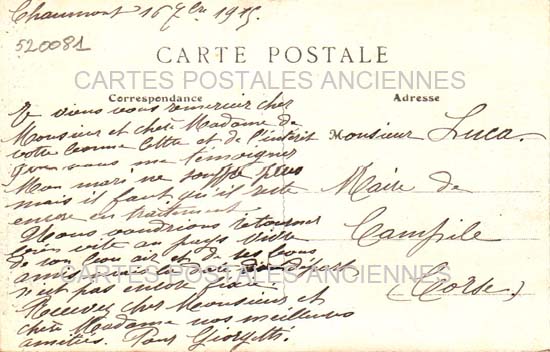 Chaumont 16 7bre 1915.
520081
CARTE POSTALE
CARTES POSTALES ANCIENNES
Correspondance
Adresse
Je viens vous remercier cher
Monsieur et chère Madame de
votre bonne lettre et de l'intérêt
que vous me témoignez
Mon mari ne souffre plus
mais il faut qu'il reste
encore en traitement.
Nous voudrions retourner
bien vite au pays vivre
de son bon air et de ses bons
amis
n'est pas encore
Recevez cher Monsieur et
chère Madame nos meilleures
amitiés.
Monsieur Luca.
Maire de
Campile
(Corse)
CARTES POSTALES ANCIENNES